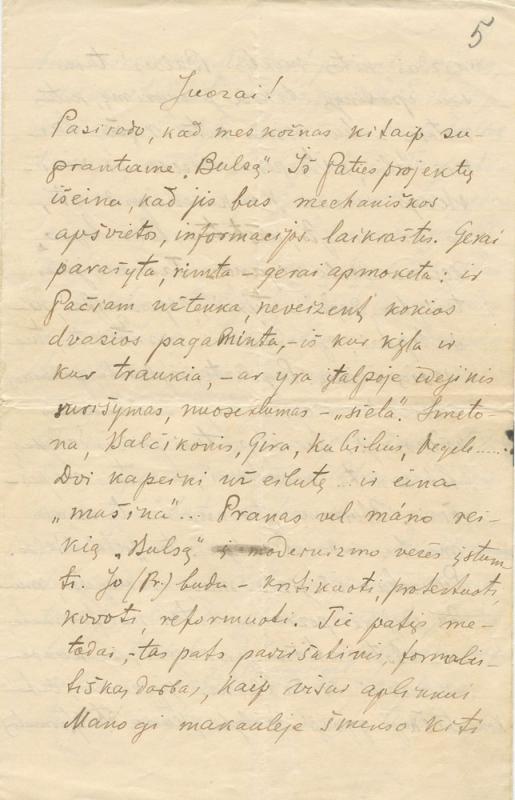 5
Juozai!
Pasirodo, kad mes kožnas kitaip su-
prantame „Balsą”. Iš Paties projektų
išeina, kad jis bus mechaniškos
apšvietos, informacijos laikraštis. Gerai
parašyta, rimta – gerai apmokėta: ir
Pačiam užtenka, neveizent kokios
dvasios pagaminta, – iš kur kyla ir
kur traukia, – ar yra įtalpoje idėjinis
surišymas, nuoseklumas – „siela”. Smeto-
na, Balčikonis, Gira, Kubilius, Vegelė.....
Dvi kapeiki už eilutę ... ir eina
„mašina”... Pranas vėl máno rei-
kią „Balsą” į modernizmo vėžes įstum-
ti. Jo (Pr.) budu – kritikuoti, protestuoti,
kovoti, reformuoti. Tie patįs me-
todai, – tas pats paviršutinis, formalis-
tiškas darbas, kaip visur aplinkui
Mano gi makaulėje šmenso kiti